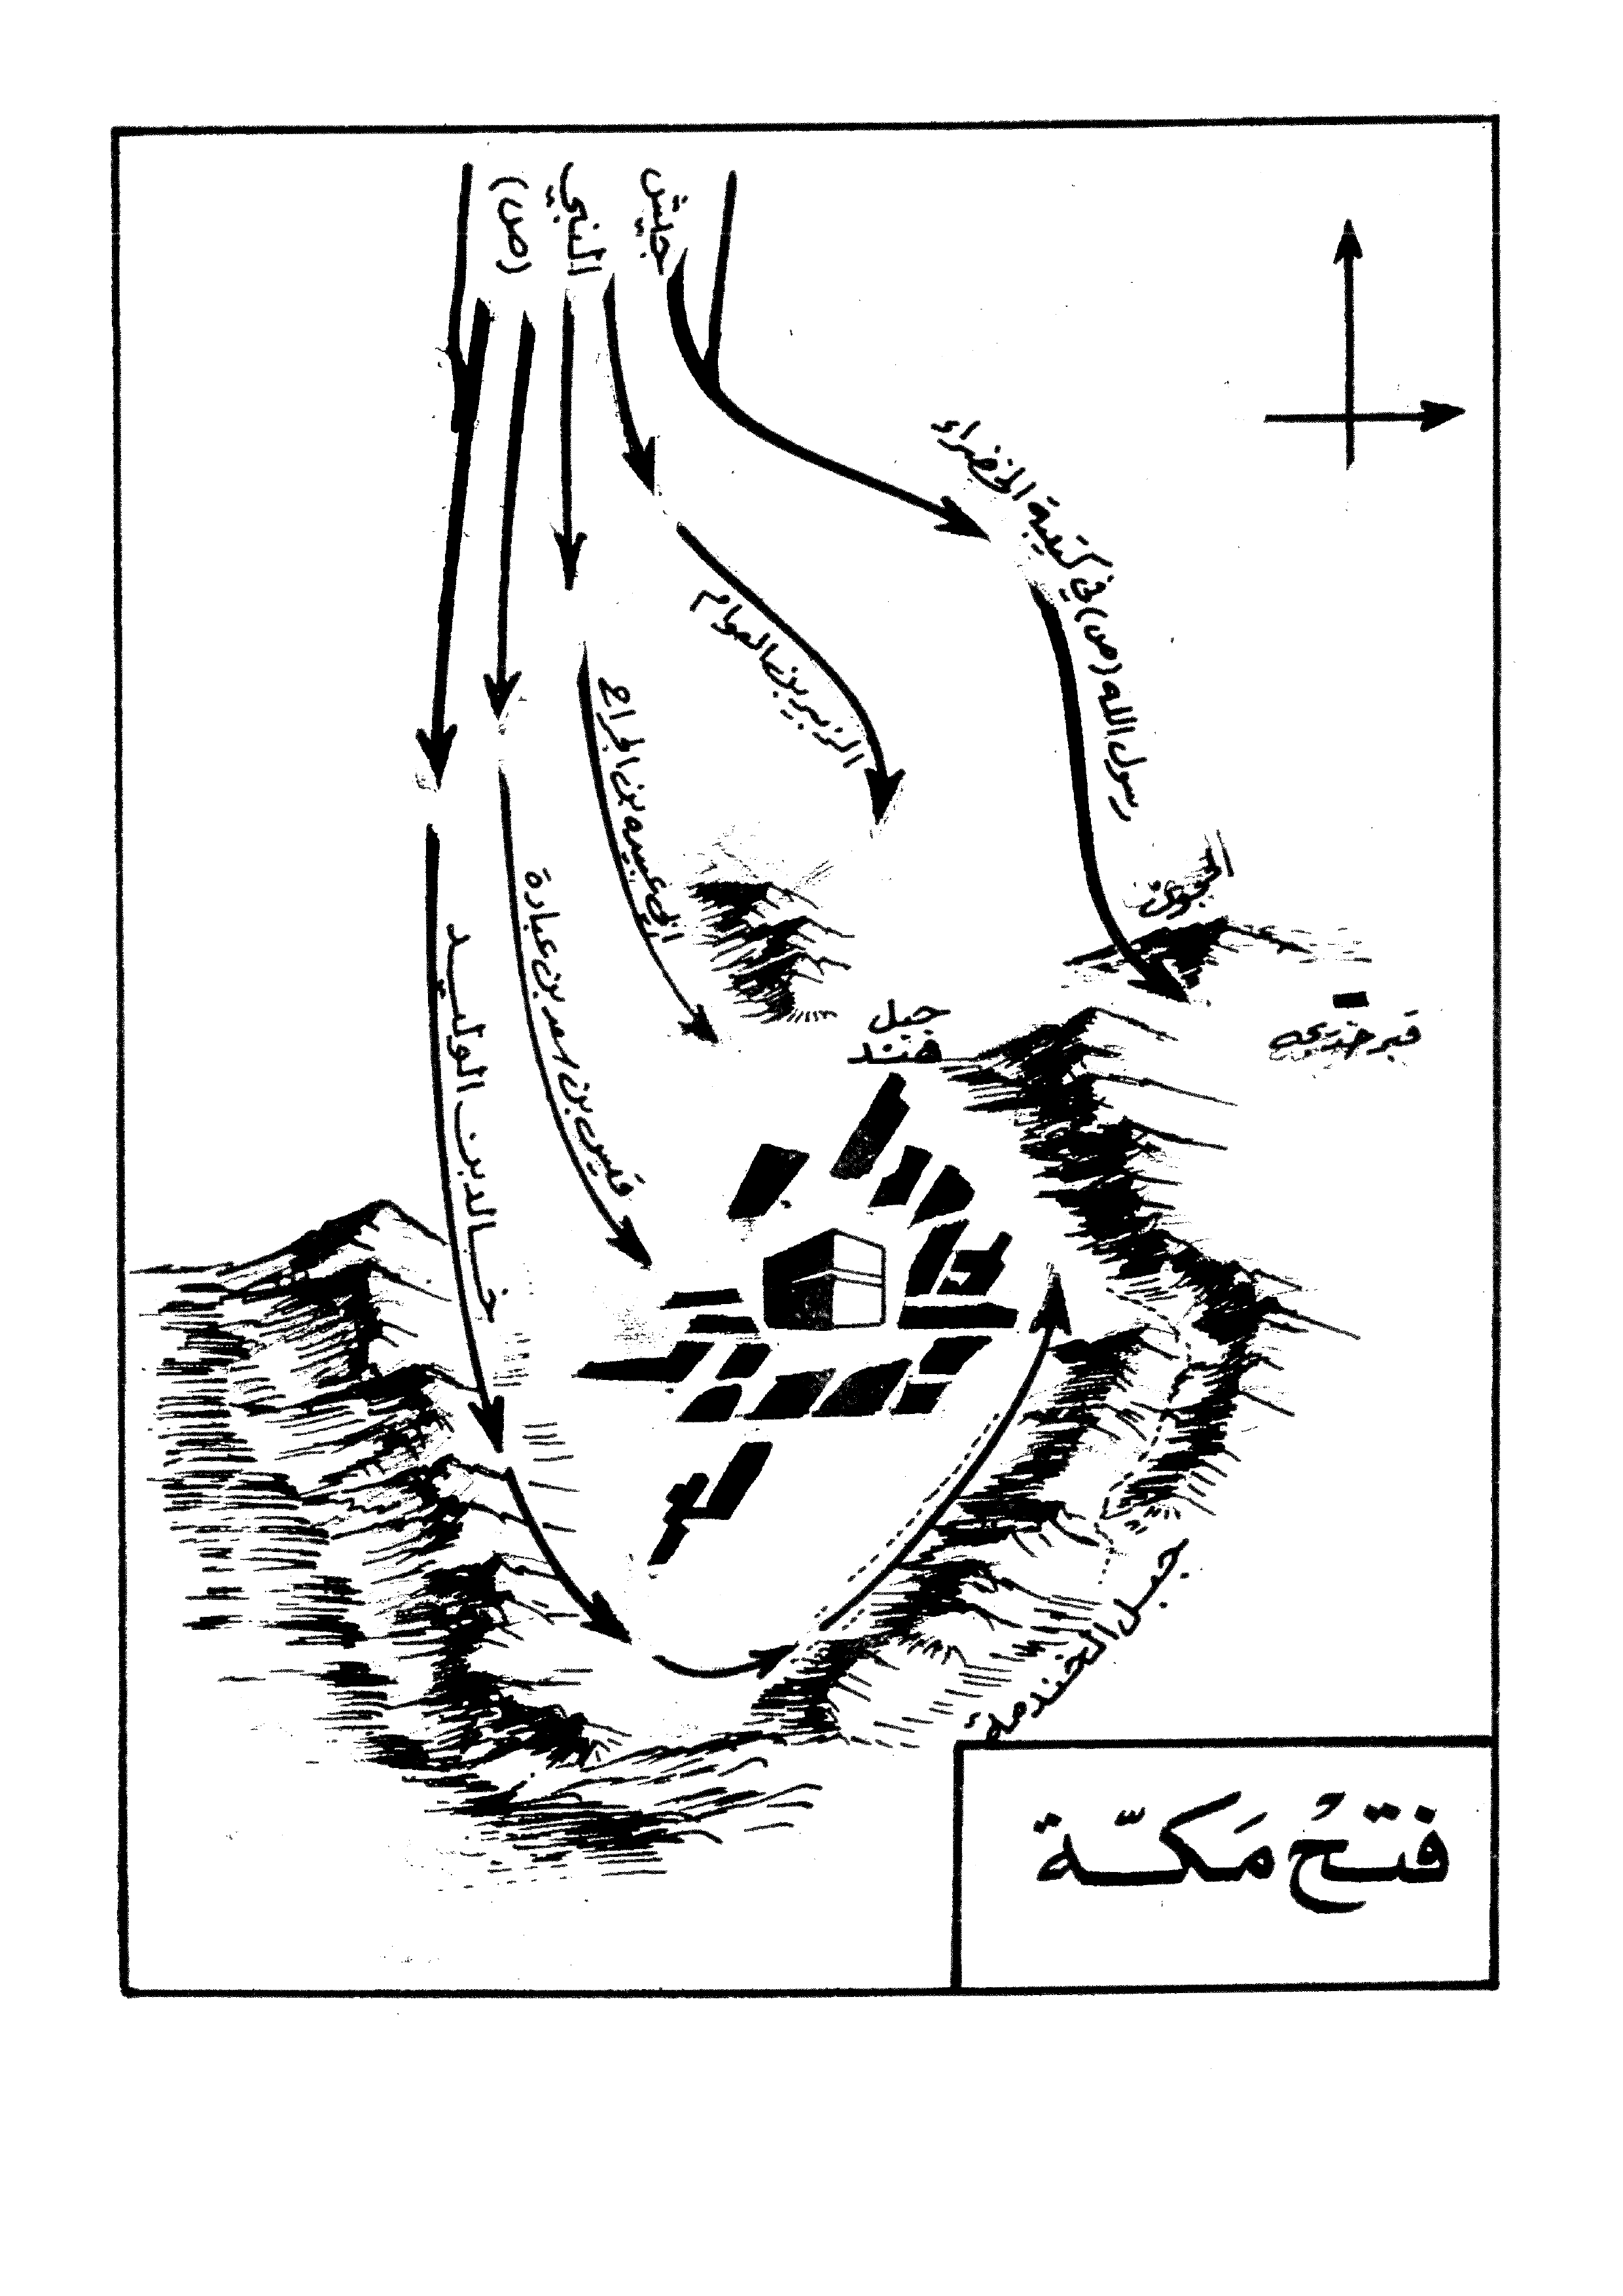 جيش
النبي
(ص)
رسول الله (ص) في كتيبة الخضراء
الزبير بن العوام
ابي عبيده بن الجراح
قيس بن سعد بن عبادة
خالد بن الوليد
الحجون
قبر خديجه
جبل
هند
جبل الخندمة
فتحُ مَكّة